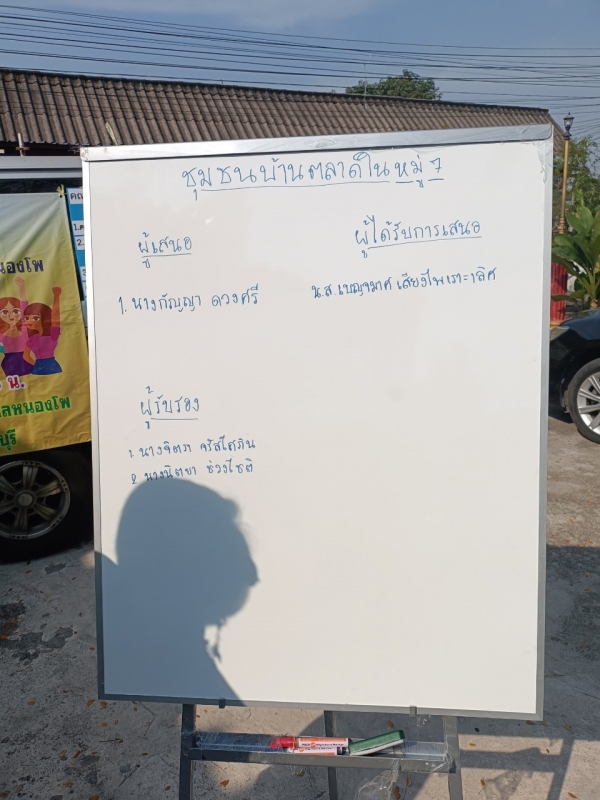 ชุมชนบ้านตลาดใน หมู่ 7
ผู้เสนอ
ผู้ได้รับการเสนอ
1. นางกัญญา ดวงศรี
น.ส. เบญจมาศ เสียงไพเราะเลิศ
ผู้รับรอง
1. นางจิตรา จรัสโสภิณ
2. นางนิตยา ช่วงโชติ
นองโพ
น.
ลหนองโพ
บุรี